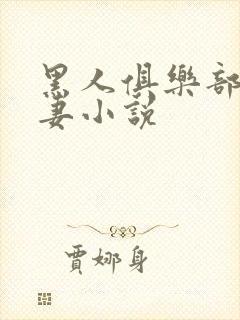 黑人俱樂部
妻小說
賈娜身